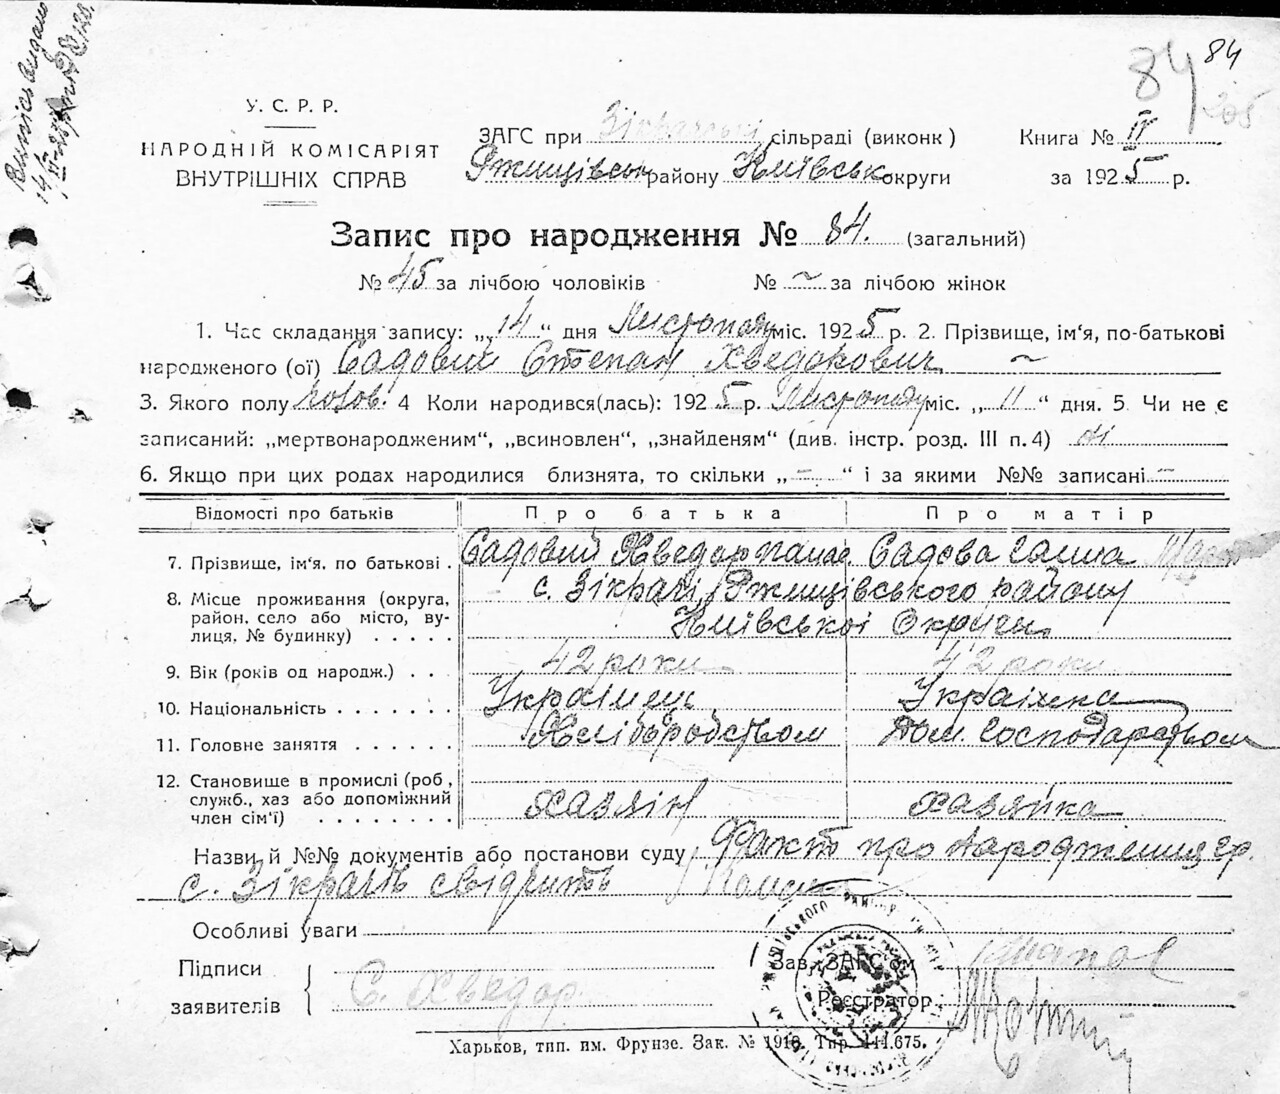 84 84
205
У. С. Р. Р.
НАРОДНІЙ КОМІСАРІЯТ
ВНУТРІШНІХ СПРАВ
ЗАГС при Зікрацькі сільраді (виконк )
Ржищівськ району Київськ округи
Книга № II
за 1925 р.
Запис про народження № 84. (загальний)
№ 45 за лічбою чоловіків № ~ за лічбою жінок
1. Час складання запису: „14“ дня Листопаду міс. 1925 р. 2. Прізвище, ім'я, по-батькові
народженого (ої) Садовий Степан Хведорович ~
3. Якого полу чолов. 4 Коли народився(лась): 1925 р. Листопаду міс. „11“ дня. 5. Чи не є
записаний: „мертвонародженим“, „всиновлен“, „знайденям“ (див. інстр. розд. III п. 4) ні
6. Якщо при цих родах народилися близнята, то скільки „-“ і за якими №№ записані —
Відомості про батьків Про батька Про матір
7. Прізвище, ім'я, по батькові . Садовий Хведор Садова Галина
8. Місце проживання (округа, район, село або місто, вулиця, № будинку) . . . . . с. Зікрачі, Ржищівського району
Київської Округи
9. Вік (років од народж.) . . . 42 роки 42 роки
10. Національність . . . . . . . Українець Українка
11. Головне заняття . . . . . . Хліборобством Дом. Господарством
12. Становище в промислі (роб , служб., хаз або допоміжний член сім'ї) . . . . . . . . хазяін хазяйка
Назви й №№ документів або постанови суду Факт про народження гр.
с. Зікрачів свідчить
Особливі уваги
Підписи
заявителів С. Хведор
Зав. ЗАГС'ом
Реєстратор
Харьков, тип. им. Фрунзе. Зак. № 1916. Тир. 444.675.